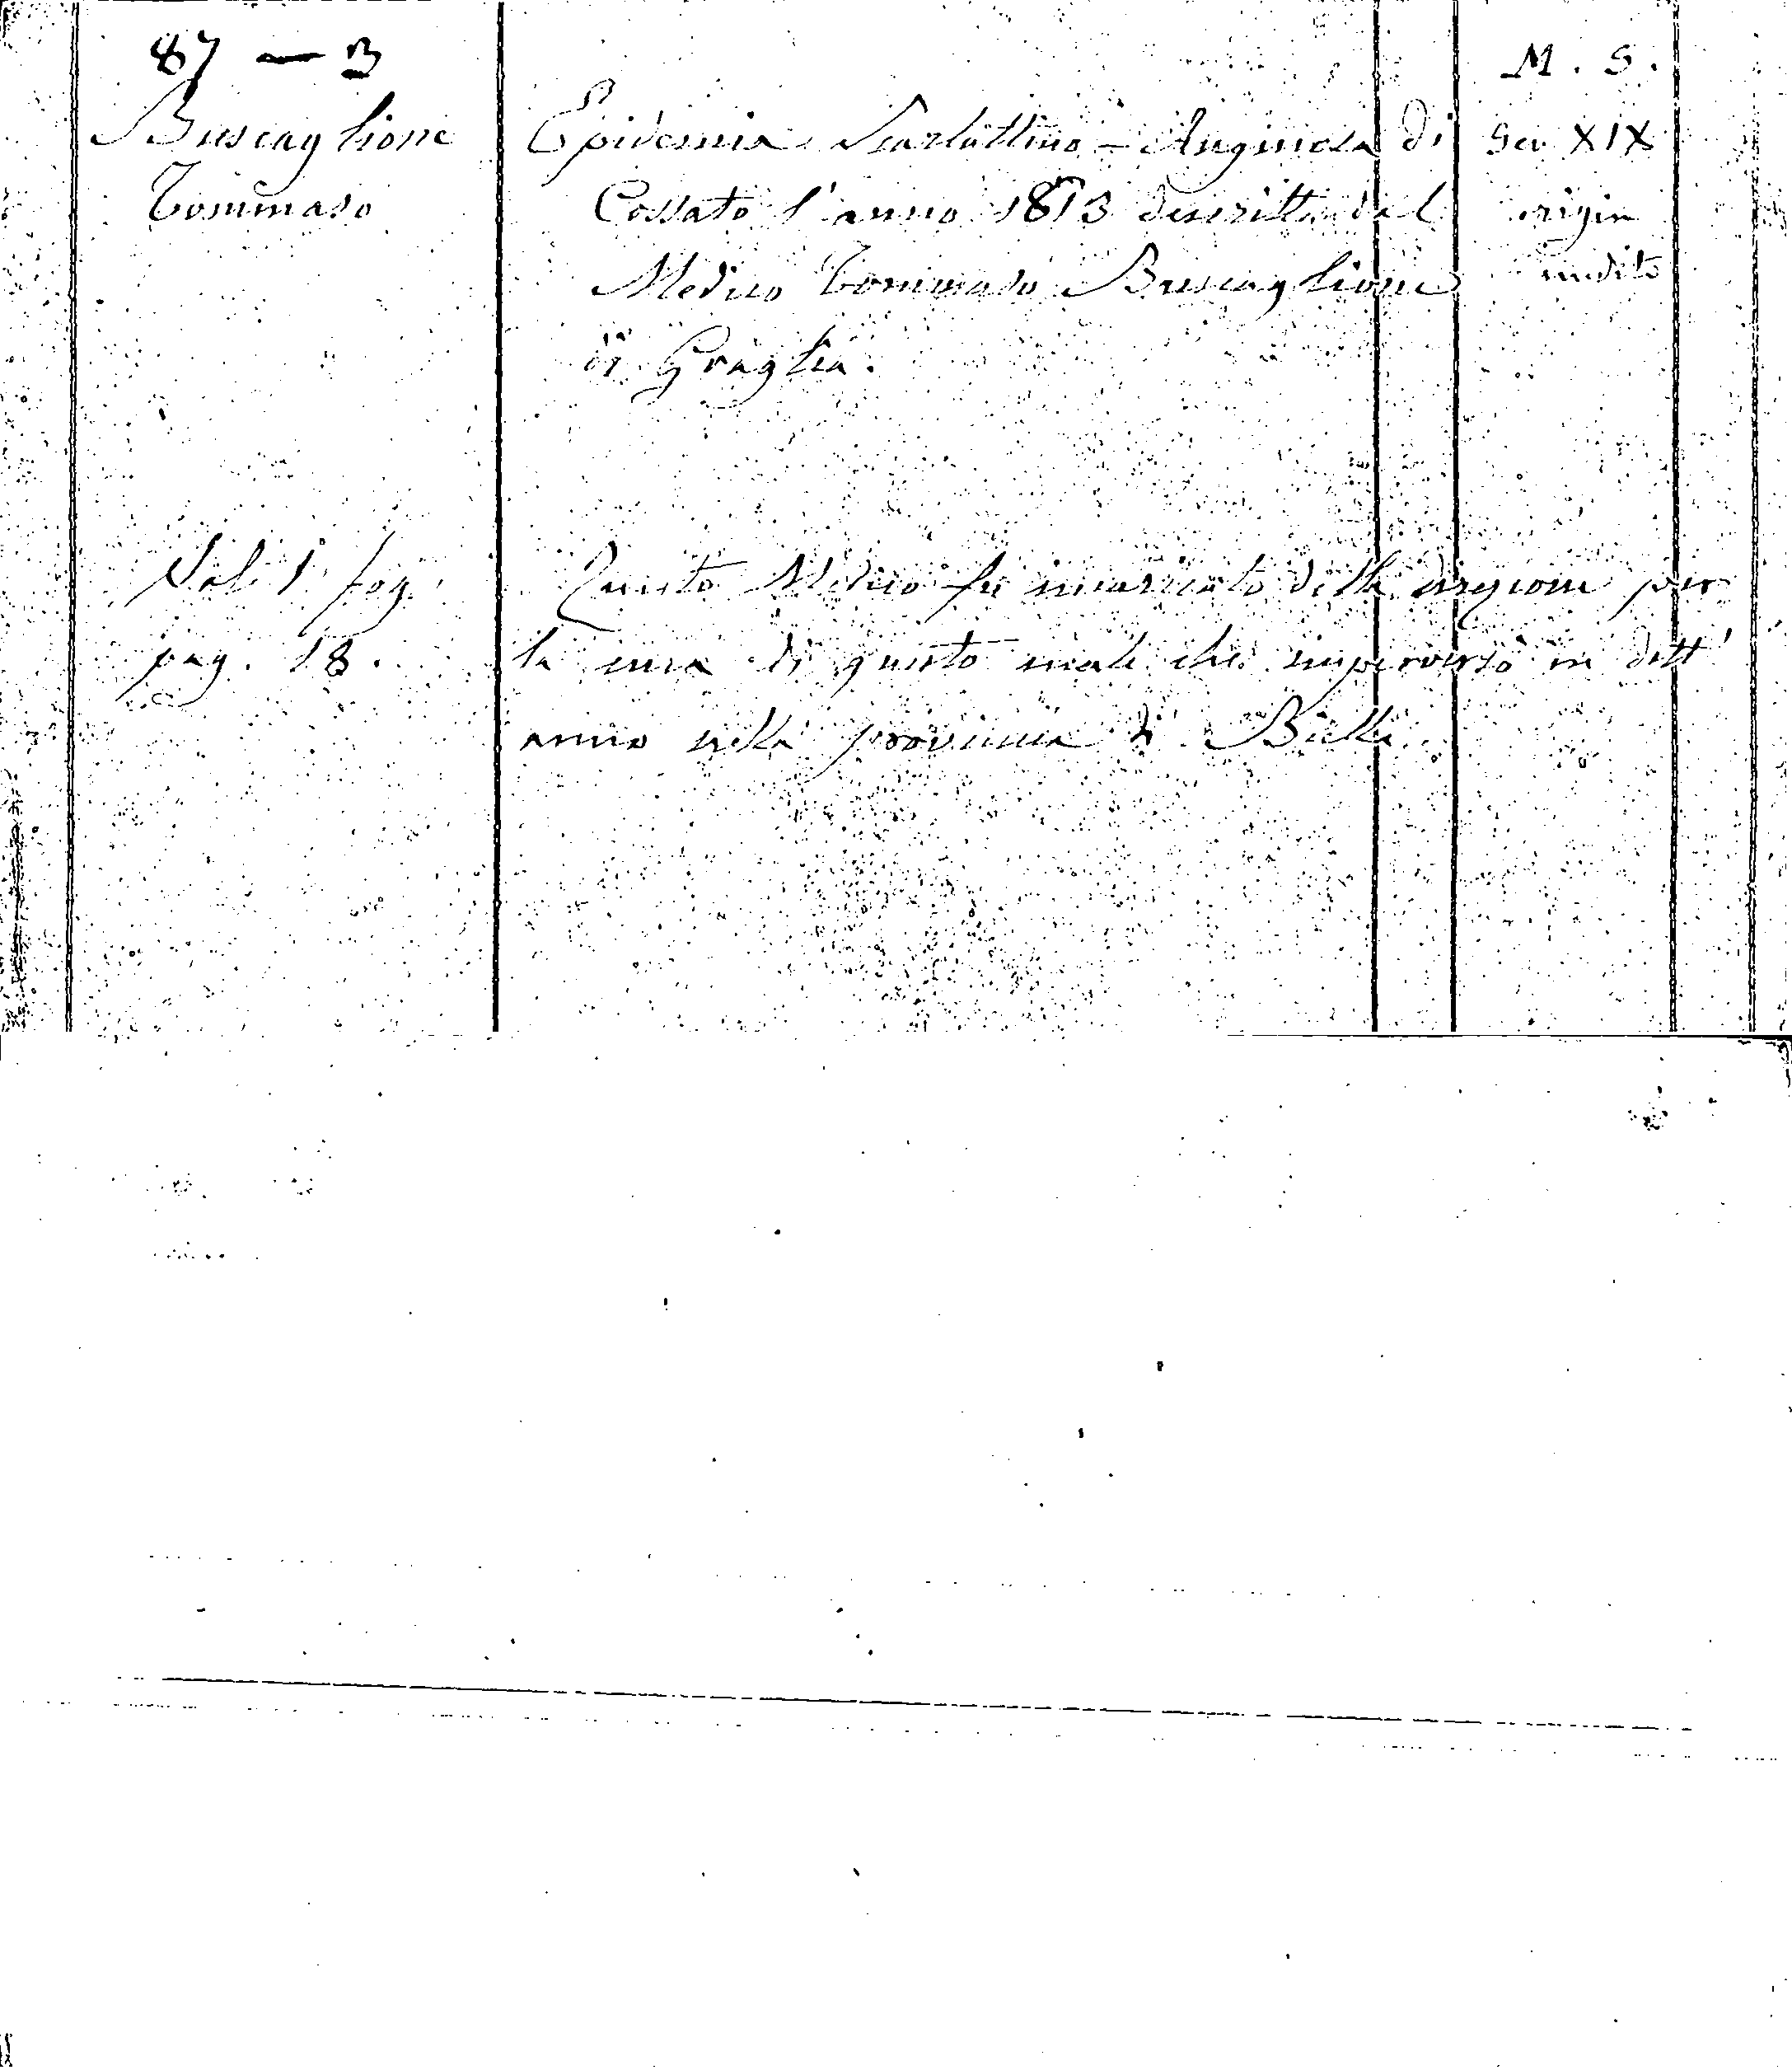 87 — B
M. S.
Buscaglione
Tommaso
Epidemia Scarlattino - Anginosa di
Cossato l'anno 1813 descritta dal
Medico Tommaso Buscaglione
di Graglia.
Sec XIX
origin
inedito
Vol. 1 fog.
pag. 18.
Questo Medico fu incaricato della per
la cura di questo male che imperversò in dett'
anno nella provincia di Biella.